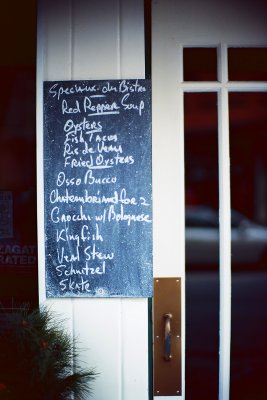 Speciaux du Bistro
Red Pepper Soup
Oysters
Fish Tacos
Ris de Veau
Fried Oysters
Osso Bucco
Chateaubriand for 2
Gnocchi w/ Bolognese
Kingfish
Veal Stew
Schnitzel
Skate
ZAGAT
RATED